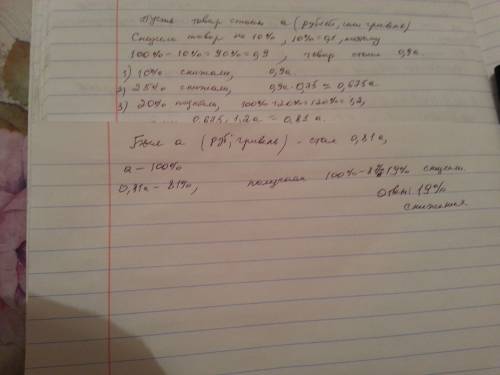 Пусть товар стоит а (рублей, или гривень)
Снизили товар на 10%, 10% = 0,1, поэтому
100% - 10% = 90% = 0,9, товар стал 0,9а.
1) 10% снижали, 0,9а.
2) 25% снижали, 0,9а · 0,75 = 0,675а
3) 20% 100% + 20% = 120% = 1,2,
0,675 · 1,2а = 0,81 а.
Был а (руб, гривень) - стал 0,81а,
а - 100%
0,81а - 81%, получаем 100% - 81% 19%
Ответ: 19%
снижения.